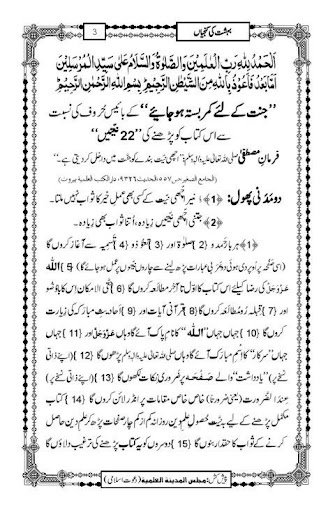 بہشت کی کنجیاں
3
اَلْحَمْدُ لِلّٰهِ رَبِّ الْعٰلَمِيْنَ وَالصَّلٰوةُ وَالسَّلَامُ عَلٰى سَيِّدِ الْمُرْسَلِيْنَ
اَمَّا بَعْدُ فَاَعُوْذُ بِاللّٰهِ مِنَ الشَّيْطٰنِ الرَّجِيْمِ بِسْمِ اللّٰهِ الرَّحْمٰنِ الرَّحِيْمِ
’’جنت کے لئے کمر بستہ ہو جائیے‘‘ کے بائیس حُروف کی نسبت
سے اس کتاب کو پڑھنے کی ’’22 نیّتیں‘‘
فرمانِ مصطفٰے صلی اللہ تعالٰی علیہ واٰلہ وسلم: اچھی نیت بندے کو جنت میں داخل کر دیتی ہے۔
(الجامع الصغیر، ص۵۵۷، الحدیث۹۳۲۶، دارالکتب العلمیۃ بیروت)
دو مَدَنی پھول: ﴿1﴾ بغیر اچھی نیت کے کسی بھی عمل خیر کا ثواب نہیں ملتا۔
﴿2﴾ جتنی اچھی نیّتیں زیادہ، اُتنا ثواب بھی زیادہ۔
﴿1﴾ ہر بار حمد و {2} صلوٰۃ اور {3} تعوُّذ و {4} تَسمِیہ سے آغاز کروں گا
(اسی صفحہ پر اُوپر دی ہوئی دو عربی عبارات پڑھ لینے سے چاروں نیتوں پر عمل ہو جائے گا) {5} اللّٰہ
عَزَّوَجَلَّ کی رضا کے لیے اس کتاب کا اوّل تا آخر مطالعہ کروں گا {6} حتَّی الامکان اِس کا باوُضو
اور {7} قبلہ رُو مُطالعہ کروں گا {8} قرآنی آیات اور {9} احادیثِ مبارکہ کی زیارت
کروں گا {10} جہاں جہاں ’’اللّٰہ‘‘ کا نام پاک آئے گا وہاں عَزَّوَجَلَّ اور {11} جہاں
جہاں ’’سرکار‘‘ کا اِسمِ مبارک آئے گا وہاں صلی اللہ تعالٰی علیہ واٰلہ وسلم پڑھوں گا {12} (اپنے ذاتی
نسخے پر) ’’یادداشت‘‘ والے صفحہ پر ضروری نکات لکھوں گا {13} (اپنے ذاتی نسخے پر)
عِندَ الضرورت (یعنی ضرورتاً) خاص خاص مقامات پر انڈر لائن کروں گا {14} کتاب
مکمل پڑھنے کے لیے بہ نیتِ حصولِ علمِ دین روزانہ کم از کم چار صفحات پڑھ کر علمِ دین حاصل
کرنے کے ثواب کا حقدار بنوں گا {15} دوسروں کو یہ کتاب پڑھنے کی ترغیب دلاؤں گا
پیش کش: مجلس المدینۃ العلمیۃ (دعوتِ اسلامی)